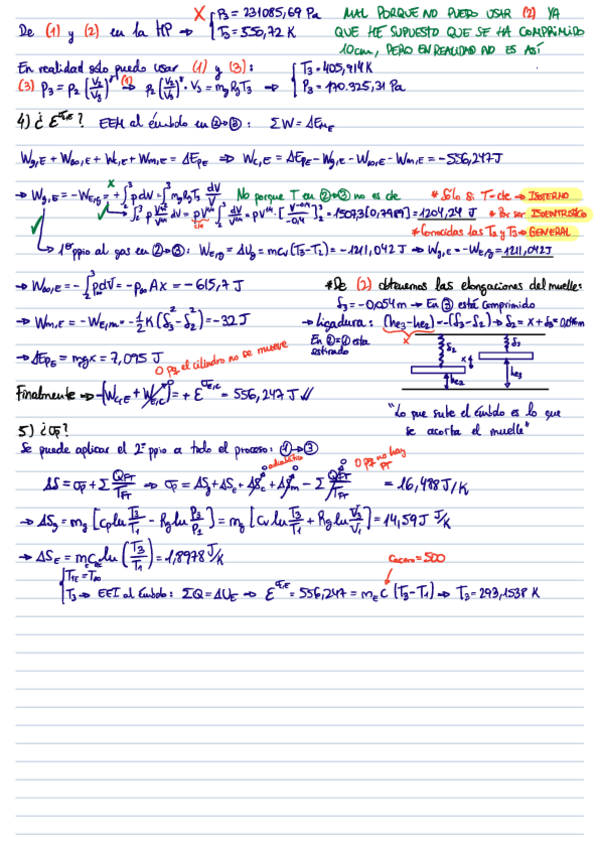 De (1) y (2) en la HP → X { P₃ = 231085,69 Pa
T₃ = 550,72 K
MAL PORQUE NO PUEDO USAR (2) YA
QUE HE SUPUESTO QUE SE HA COMPRIMIDO
10cm, PERO EN REALIDAD NO ES ASÍ
En realidad solo puedo usar (1) y (3):
{ T₃ = 405,414 K
P₃ = 170.325,31 Pa
(3) P₃ = P₂ (V₂/V₃)^γ →(1) P₂ (V₂/V₃)^γ · V₃ = mg Rg T₃ →
4) ¿ E^σ,E ? EEM al émbolo en ②→③: ΣW = ΔEm,E
Wg,E + W∞,E + Wc,E + Wm,E = ΔEPE ⇒ Wc,E = ΔEPE − Wg,E − W∞,E − Wm,E = −556,247 J
→ Wg,E = −WE,g = + ∫₂³ p dV = ∫₂³ mg Rg T₃ dV/V X No porque T en ②→③ no es cte
* Sólo si T=cte → ISOTERMO
* Por ser ISOENTRÓPICO
* Conocidas las T₂ y T₃ → GENERAL
1204,24 J
↳ 1er ppio al gas en ②→③: WE,g = ΔUg = mcv(T₃−T₂) = −1211,042 J → Wg,E = −WE,g = 1211,042 J
→ W∞,E = − ∫₂³ p∞ dV = −p∞ A x = −615,7 J
→ Wm,E = −WE,m = −½ K (δ₃² − δ₂²) = −32 J
→ ΔEPE = mgx = 7,095 J
0 pq el cilindro no se mueve
Finalmente → −(Wc,E + WE,c) = + E^σE,c = 556,247 J //
* De (2) obtenemos las elongaciones del muelle:
δ₃ = −0,054 m → En ③ está comprimido
→ Ligadura: (he₃ − he₂) = −(δ₃ − δ₂) → δ₂ = x + δ₃ = 0,046 m
En ②=① está
estirado
X
δ₂
x
δ₃
he₂
he₃
"Lo que sube el émbolo es lo que
se acorta el muelle"
5) ¿σF?
Se puede aplicar el 2º ppio a todo el proceso: ①→③
adiabático
0 pq no hay
FT
ΔS = σF + Σ QFT/TFT ⇒ σF = ΔSg + ΔSE + ΔSc + ΔSm − Σ QFT/TFT = 16,488 J/K
→ ΔSg = mg [cp ln T₃/T₁ − Rg ln P₃/P₁] = mg [cv ln T₃/T₁ + Rg ln V₃/V₁] = 14,59 J/K
→ ΔSE = mE cE ln (T₃/T₁) = 1,8978 J/K
Cacero = 500
{ T1E = T∞
T₃ → EEI al émbolo: ΣQ = ΔUE → E^σ,E = 556,247 = mE c (T₃−T₁) → T₃ = 293,1538 K